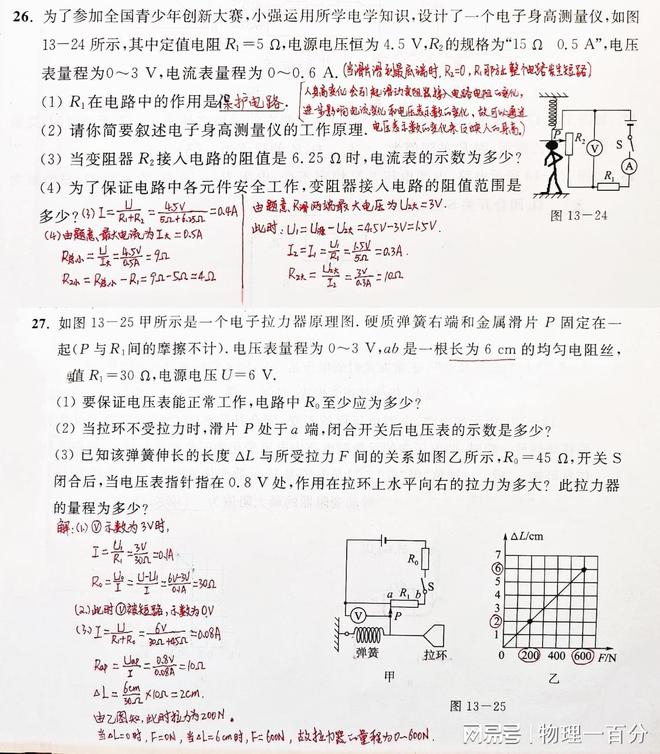 26. 为了参加全国青少年创新大赛,小强运用所学电学知识,设计了一个电子身高测量仪,如图
13-24 所示,其中定值电阻 R₁=5 Ω,电源电压恒为 4.5 V,R₂的规格为“15 Ω 0.5 A”,电压
表量程为0~3 V,电流表量程为 0~0.6 A.(当滑片滑到最高端时,R₂=0,R₁可防止整个电路发生短路)
(1) R₁在电路中的作用是保护电路.
人身高变化会引起滑动变阻器接入电路电阻的变化,
进而影响电流变化和电压表示数的变化,故可以通过
电压表示数的变化来反映人的身高)
(2) 请你简要叙述电子身高测量仪的工作原理.
(3) 当变阻器 R₂接入电路的阻值是 6.25 Ω 时,电流表的示数为多少?
(4) 为了保证电路中各元件安全工作,变阻器接入电路的阻值范围是
多少?
(3) I=U/(R₁+R₂)=4.5V/(5Ω+6.25Ω)=0.4A
(4)由题意,最大电流为I大=0.5A
R总小=U/I大=4.5V/0.5A=9Ω
R₂小=R总小-R₁=9Ω-5Ω=4Ω
由题意R滑两端最大电压为U₂大=3V.
此时:U₁=U总-U₂大=4.5V-3V=1.5V.
I₂=I₁=U₁/R₁=1.5V/5Ω=0.3A.
R₂大=U₂大/I₂=3V/0.3A=10Ω
P
R₂
V
S
A
R₁
图 13-24
27. 如图 13-25 甲所示是一个电子拉力器原理图. 硬质弹簧右端和金属滑片 P 固定在一
起(P 与R₁间的摩擦不计). 电压表量程为 0~3 V,ab 是一根长为 6 cm 的均匀电阻丝,
阻值 R₁=30 Ω,电源电压U=6 V.
(1) 要保证电压表能正常工作,电路中 R₀至少应为多少?
(2) 当拉环不受拉力时,滑片 P 处于a 端,闭合开关后电压表的示数是多少?
(3) 已知该弹簧伸长的长度 ΔL 与所受拉力 F 间的关系如图乙所示,R₀=45 Ω,开关 S
闭合后,当电压表指针指在 0.8 V 处,作用在拉环上水平向右的拉力为多大? 此拉力器
的量程为多少?
解:(1) V示数为3V时,
I=U₁/R₁=3V/30Ω=0.1A
R₀=U₀/I=(U-U₁)/I=(6V-3V)/0.1A=30Ω
(2)此时V被短路,示数为0V
(3) I=U/(R₁+R₀)=6V/(30Ω+45Ω)=0.08A
Rap=Uap/I=0.8V/0.08A=10Ω
ΔL=6cm/30Ω×10Ω=2cm.
由乙图知,此时拉力为200N。
当ΔL=0时,F=0N,当ΔL=6cm时,F=600N,故拉力器的量程为0~600N.
R₀
S
a R₁ b
V
P
弹簧
拉环
甲
ΔL/cm
7
6
5
4
3
2
1
0 200 400 600 F/N
乙
图 13-25
搜狐号@物理一百分